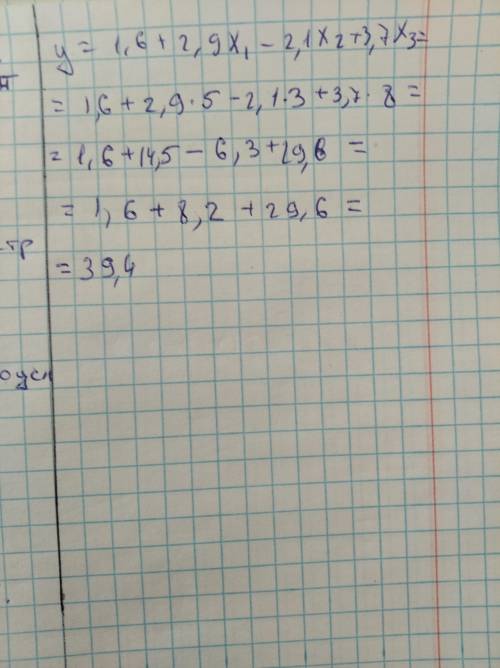 y = 1,6 + 2,9x₁ - 2,1x₂ + 3,7x₃ =
= 1,6 + 2,9·5 - 2,1·3 + 3,7·8 =
= 1,6 + 14,5 - 6,3 + 29,6 =
= 1,6 + 8,2 + 29,6 =
= 39,4